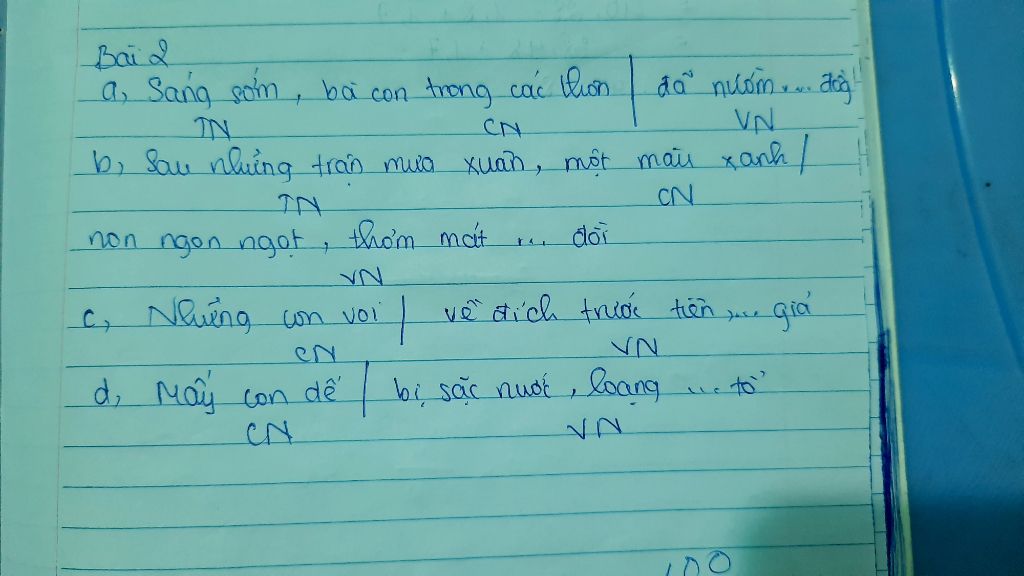 Bài 2
a, Sáng sớm, bà con trong các thôn | đã nườm... đồng
TN CN VN
b, Sau những trận mưa xuân, một màu xanh /
TN CN
non ngon ngọt, thơm mát ... đồi
VN
c, Những con voi / về đích trước tiên,... giá
CN VN
d, Mấy con dế / bị sặc nước, loạng ... tổ
CN VN
100